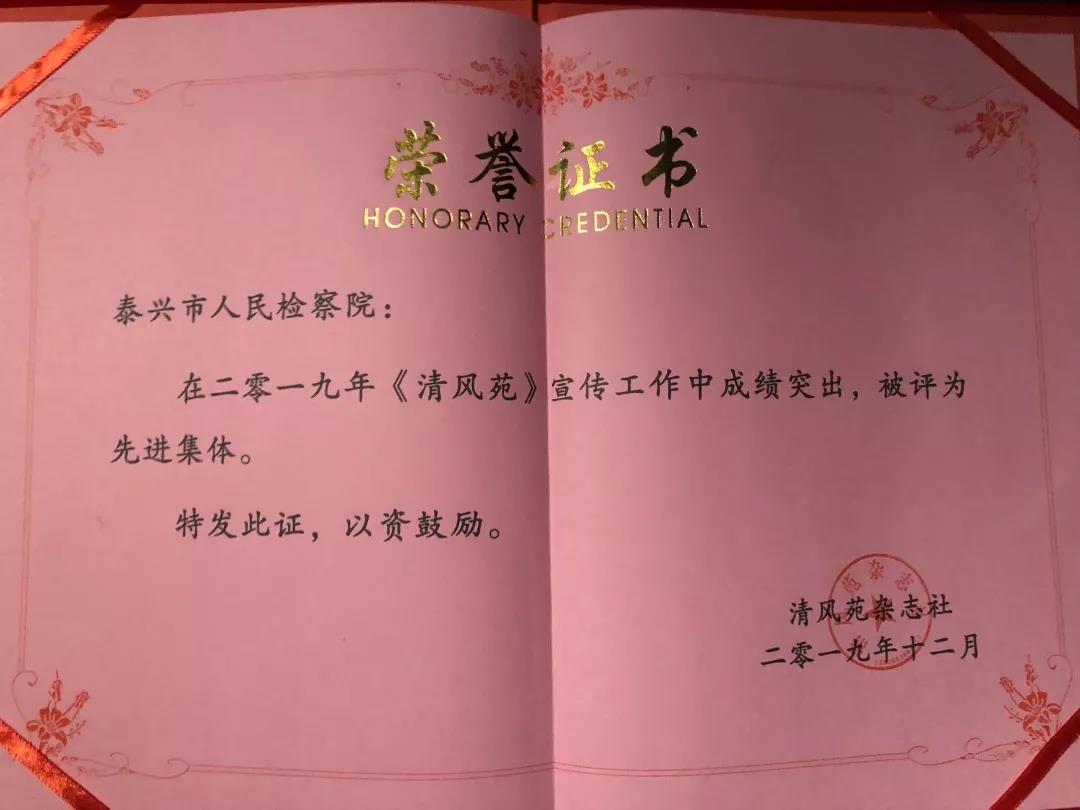 荣誉证书
HONORARY CREDENTIAL
泰兴市人民检察院：
在二零一九年《清风苑》宣传工作中成绩突出，被评为
先进集体。
特发此证，以资鼓励。
清风苑杂志社
二零一九年十二月